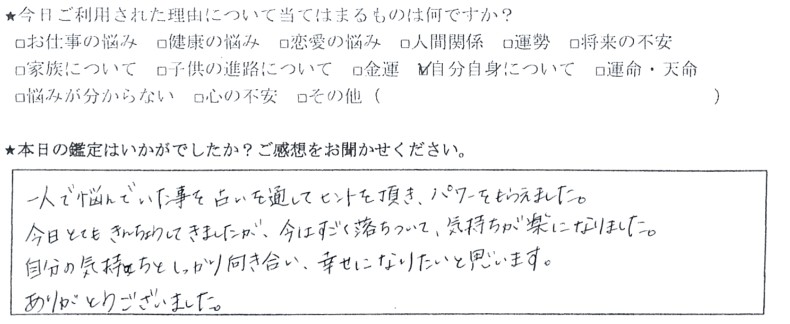 ★今日ご利用された理由について当てはまるものは何ですか？
□お仕事の悩み □健康の悩み □恋愛の悩み □人間関係 □運勢 □将来の不安
□家族について □子供の進路について □金運 ☑自分自身について □運命・天命
□悩みが分からない □心の不安 □その他（ ）
★本日の鑑定はいかがでしたか？ご感想をお聞かせください。
一人で悩んでいた事を占いを通してヒントを頂き、パワーをもらえました。
今日とてもきんちょうしてきましたが、今はすごく落ちついて、気持ちが楽になりました。
自分の気持ちとしっかり向き合い、幸せになりたいと思います。
ありがとうございました。